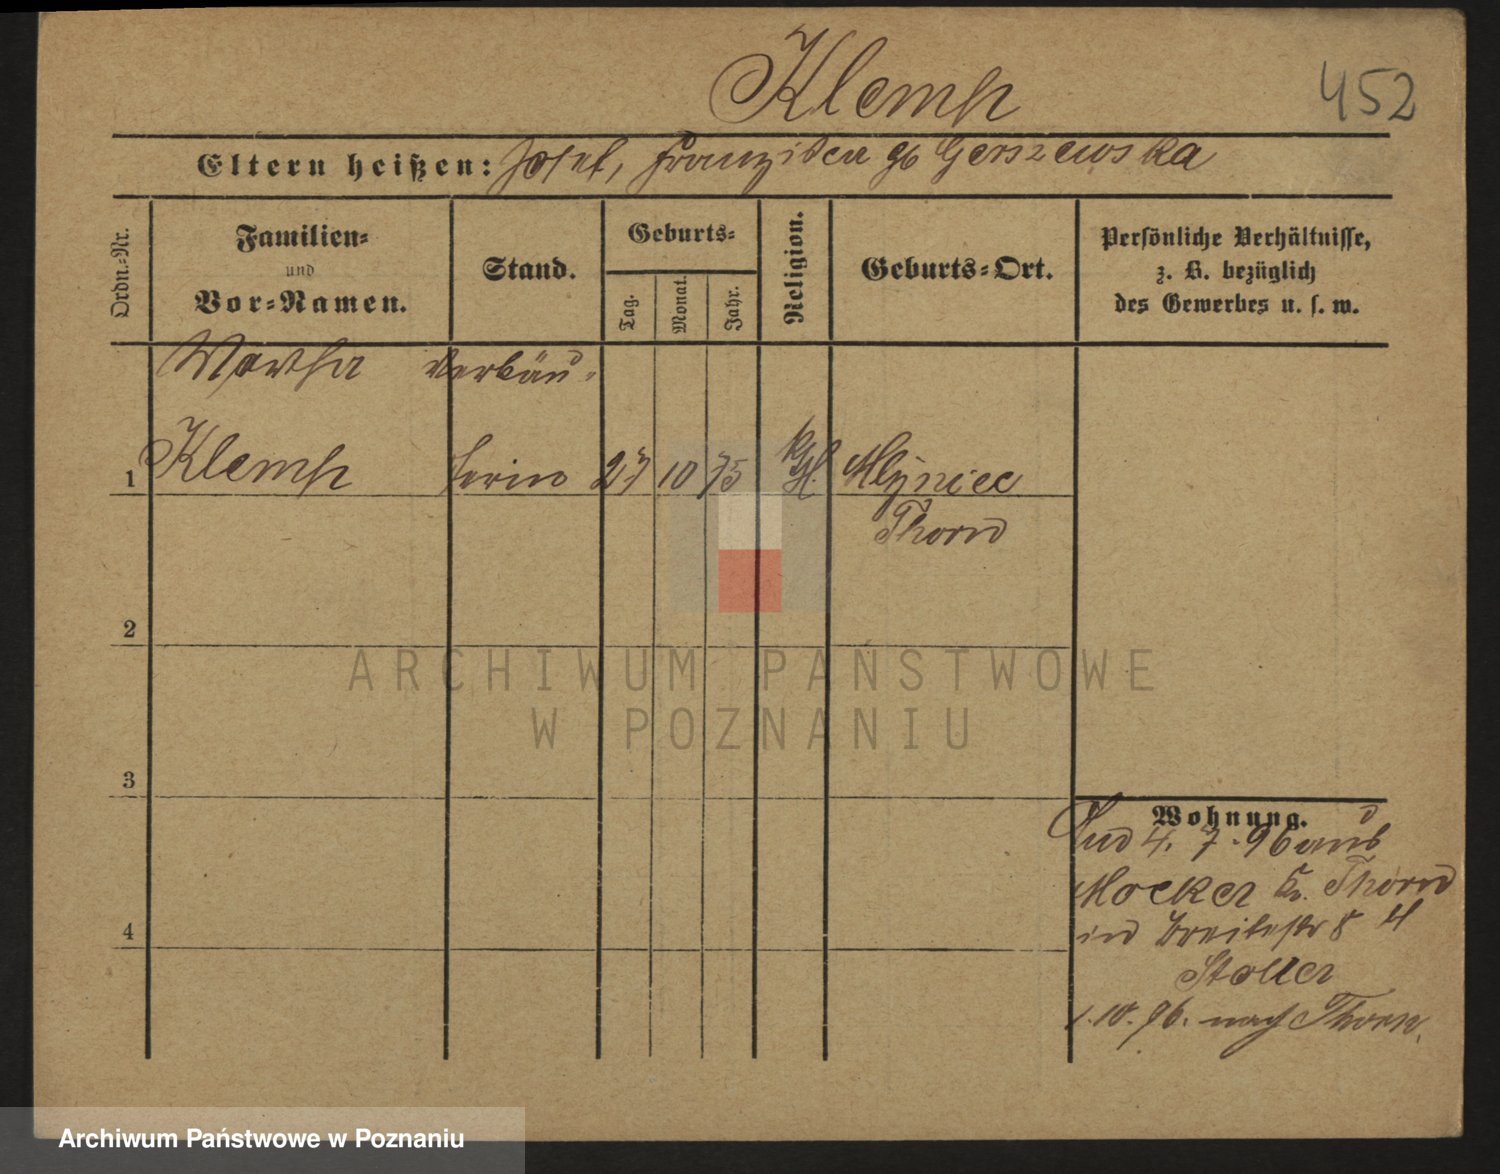 Klemp
452
Eltern heißen: Josef, Franziska gb Gerszewska
Ordn.-Nr.
Familien-
und
Vor-Namen.
Stand.
Geburts-
Tag.
Monat.
Jahr.
Religion.
Geburts-Ort.
Persönliche Verhältnisse,
z. B. bezüglich
des Gewerbes u. s. w.
Martha
Verkäu-
1 Klemp ferin 27 10 75 kth. Mlyniec
Thorn
2
3
4
Wohnung.
4. 7. 96 aus
Mocker Kr. Thorn
in Breitestr 8
Stoller
1.10.96. nach Thorn.
ARCHIWUM PAŃSTWOWE
W POZNANIU
Archiwum Państwowe w Poznaniu